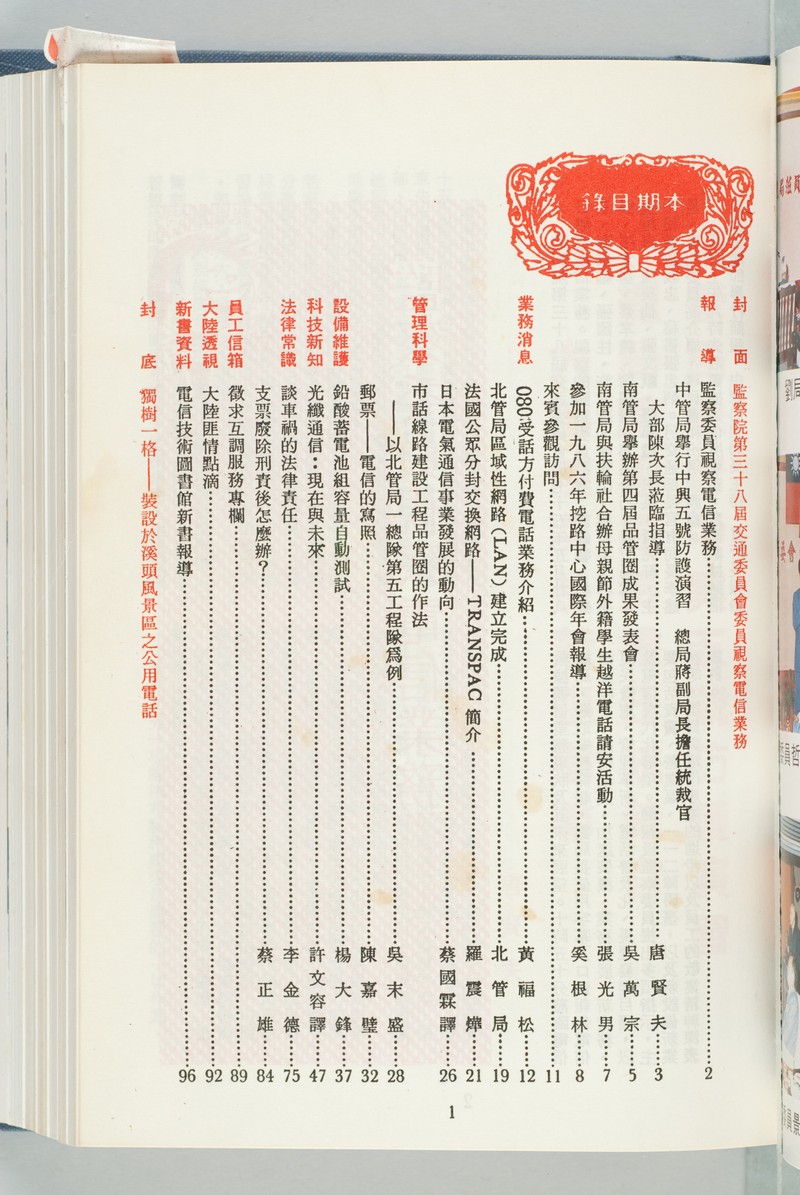 本期目錄
封面 監察院第三十八屆交通委員會委員視察電信業務
報導 監察委員視察電信業務 2
中管局舉行中興五號防護演習 總局蔣副局長擔任統裁官
大部陳次長蒞臨指導 唐賢夫 3
南管局舉辦第四屆品管圈成果發表會 吳萬宗 5
南管局與扶輪社合辦母親節外籍學生越洋電話請安活動 張光男 7
參加一九八六年挖路中心國際年會報導 奚根林 8
來賓參觀訪問 11
業務消息 080受話方付費電話業務介紹 黃福松 12
北管局區域性網路(LAN)建立完成 北管局 19
法國公眾分封交換網路——TRANSPAC 簡介 羅震燁 21
日本電氣通信事業發展的動向 蔡國霖譯 26
管理科學 市話線路建設工程品管圈的作法
——以北管局一總隊第五工程隊爲例 吳末盛 28
郵票——電信的寫照 陳嘉璧 32
設備維護 鉛酸蓄電池組容量自動測試 楊大鋒 37
科技新知 光纖通信：現在與未來 許文容譯 47
法律常識 談車禍的法律責任 李金德 75
支票廢除刑責後怎麼辦？ 蔡正雄 84
員工信箱 徵求互調服務專欄 89
大陸透視 大陸匪情點滴 92
新書資料 電信技術圖書館新書報導 96
封底 獨樹一格——裝設於溪頭風景區之公用電話
1